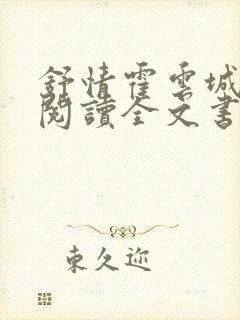 舒情霍雲城
閱讀全文書
東久迩